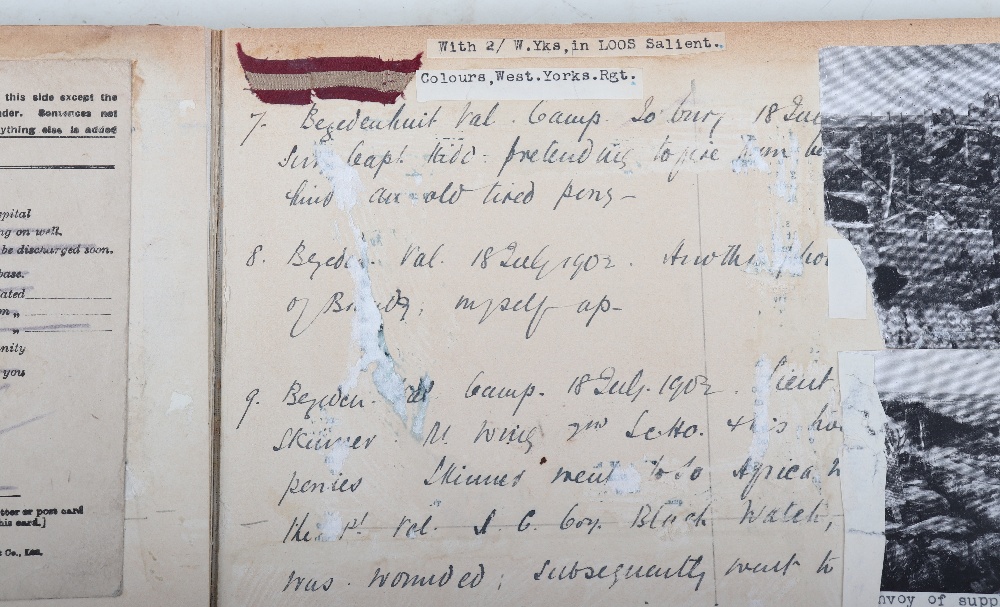 this side except the
der. Sentences not
ything else is added
spital
ng on well.
be discharged soon.
base.
ated
m "
"
nity
you
tter or post card
his card.]
Co., Ltd.
With 2/ W.Yks,in LOOS Salient.
Colours,West.Yorks.Rgt.
7. Bezedenhuit Val. Camp. Jo'burg 18 Jul
Capt Kidd. pretending to
hind an old tired pony -
8. Val. 18 July 1902. Another
of myself up -
9. Bezeden. Camp. 18 July. 1902. Lieut
Skinner this
ponies Skinner went to So Africa
the Vol. S. C. Coy. Black Watch,
was wounded; subsequently went to
nvoy of supp